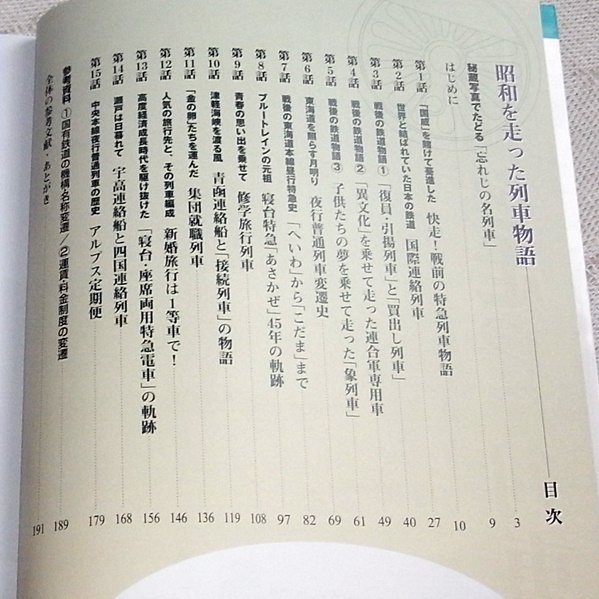 昭和を走った列車物語 目次
秘蔵写真でたどる「忘れじの名列車」 3
はじめに 9
第1話 「国威」を賭けて驀進した 快走！戦前の特急列車物語 10
第2話 世界と結ばれていた日本の鉄道 国際連絡列車 27
第3話 戦後の鉄道物語① 「復員・引揚列車」と「買出し列車」 40
第4話 戦後の鉄道物語② 「異文化」を乗せて走った連合軍専用車 49
第5話 戦後の鉄道物語③ 子供たちの夢を乗せて走った「象列車」 61
第6話 東海道を照らす月明り 夜行普通列車変遷史 69
第7話 戦後の東海道本線昼行特急史 「へいわ」から「こだま」まで 82
第8話 ブルートレインの元祖 寝台特急「あさかぜ」45年の軌跡 97
第9話 青春の思い出を乗せて 修学旅行列車 108
第10話 津軽海峡を渡る風 青函連絡船と「接続列車」の物語 119
第11話 「金の卵」たちを運んだ 集団就職列車 136
第12話 人気の旅行先と、その列車編成 新婚旅行は1等車で！ 146
第13話 高度経済成長時代を駆け抜けた 「寝台・座席両用特急電車」の軌跡 156
第14話 瀬戸は日暮れて 宇高連絡船と四国連絡列車 168
第15話 中央本線夜行普通列車の歴史 アルプス定期便 179
参考資料 ①国有鉄道の機構・名称変遷／②運賃・料金制度の変遷 189
全体の参考文献・あとがき 191